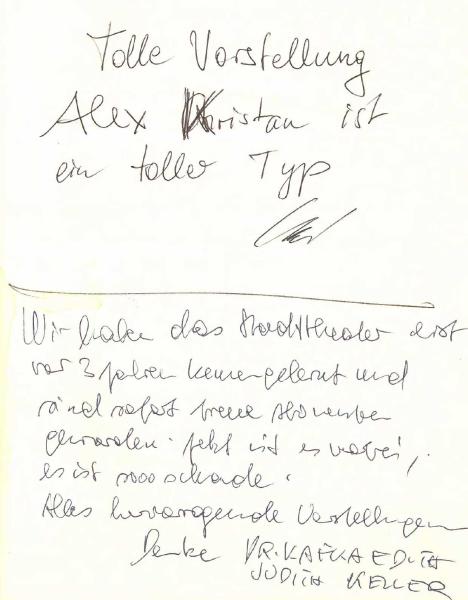 Tolle Vorstellung
Alex Kristan ist
ein toller Typ
Wir haben das Stadttheater erst
vor 3 Jahren kennengelernt und
sind sofort treue Abonnenten
geworden. Jetzt ist es vorbei,
es ist sooo schade.
Alles hervorragende Vorstellungen
Danke DR. KAFKA EDITH
JUDITH KELLER